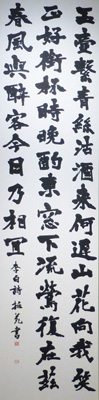 玉壺繫青絲沽酒來何遲山花向我笑
正好銜杯時晚酌東窗下流鶯復在茲
春風與醉客今日乃相宜
李白詩 書